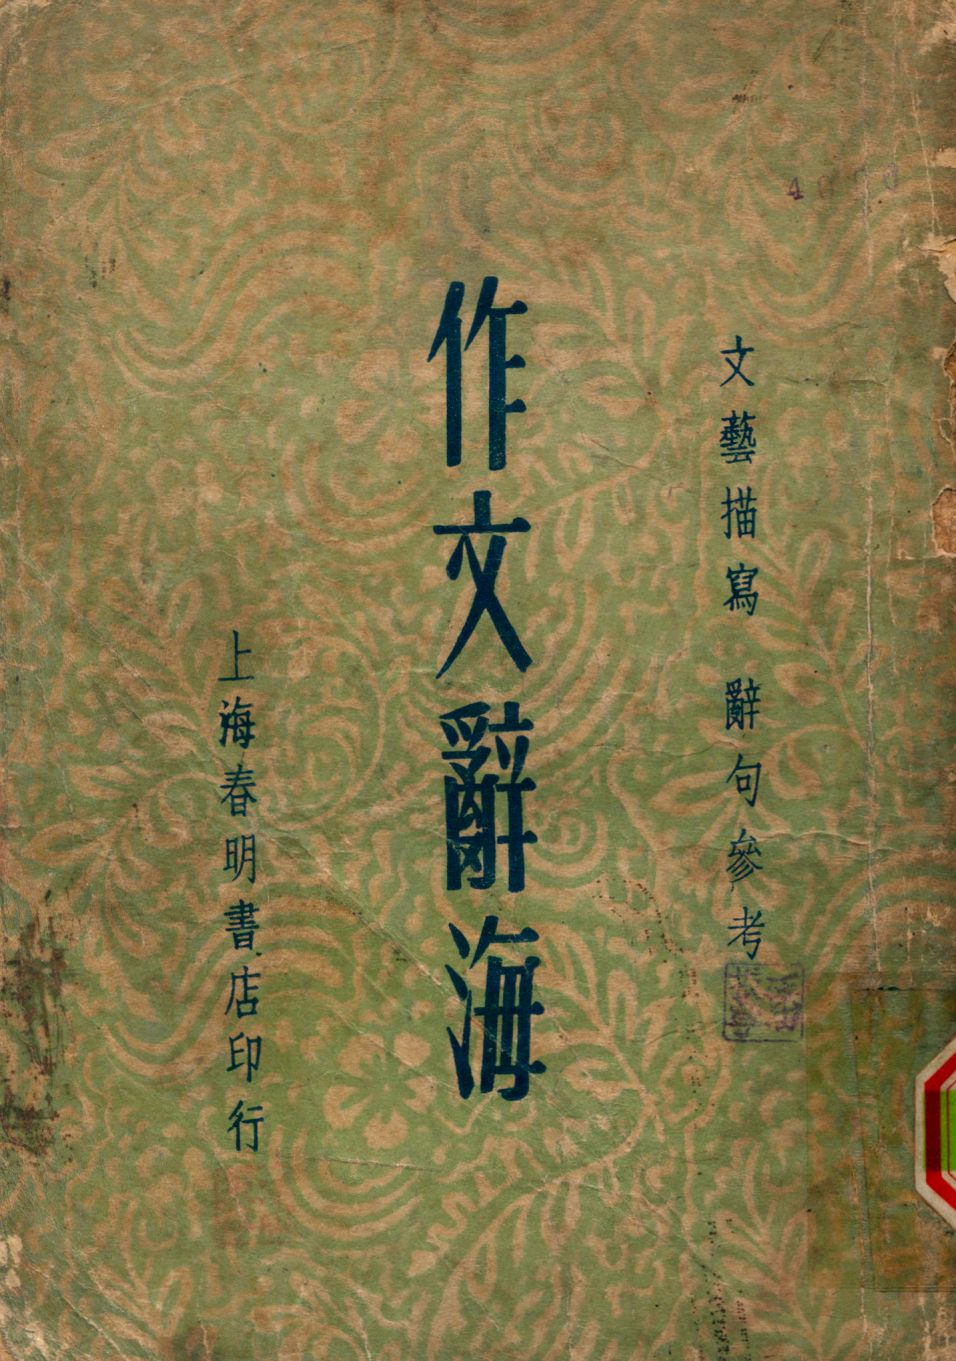 文藝描寫 辭句參考
作文辭海
上海春明書店印行